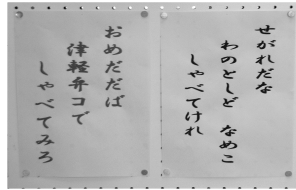 せがれだな
わのとしど なめこ
しゃべてけれ
おめだだば
津軽弁コで
しゃべてみろ